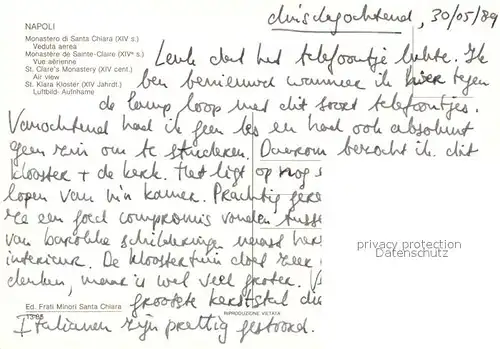 NAPOLI
Monastero di Santa Chiara (XIV s.)
Veduta aerea
Monastère de Sainte-Claire (XIVe s.)
Vue aérienne
St. Clare's Monastery (XIV cent.)
Air view
St. Klara Kloster (XIV Jahrdt.)
Luftbild-Aufnhame
dinsdagochtend, 30/05/89
Leuk dat het telefoontje lukte. Ik
ben benieuwd wanneer ik hier tegen
de lamp loop met dit soort telefoontjes.
Vanochtend had ik geen les en had ook absoluut
geen zin om te studeren. Daarom bezocht ik dit
klooster + de kerk. Het ligt op nog
lopen van m'n kamer. Prachtig
ze een goed compromis vonden
van barokke schilderingen naast
interieur. De kloostertuin doet zeer
denken, maar is wel veel groter.
grootste kerststal die
Italianen zijn prettig gestoord.
privacy protection
Datenschutz
Ed. Frati Minori Santa Chiara
RIPRODUZIONE VIETATA